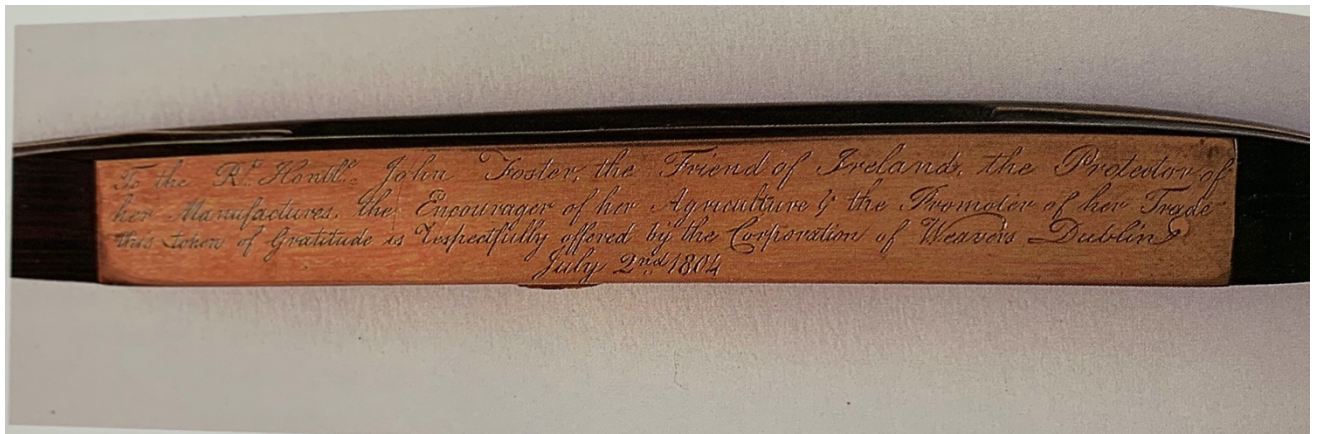 To the Rt. Honble. John Foster, the Friend of Ireland, the Protector of
her Manufactures, the Encourager of her Agriculture & the Promoter of her Trade
this token of Gratitude is respectfully offered by the Corporation of Weavers Dublin
July 2nd. 1804